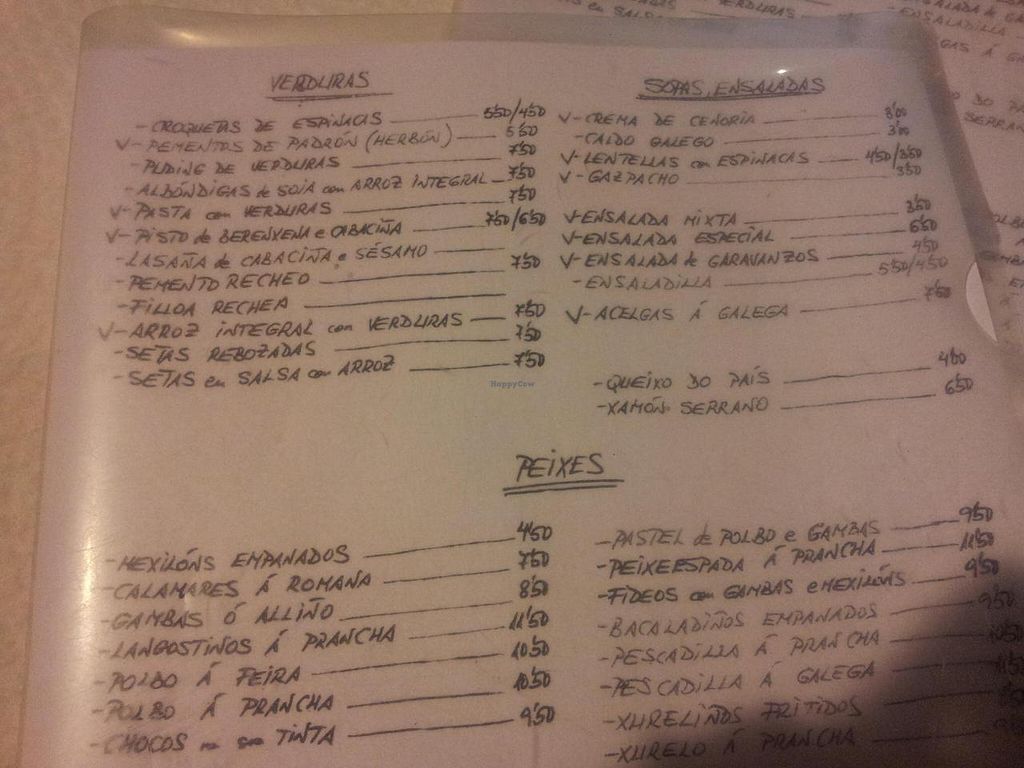 VERDURAS
- CROQUETAS DE ESPINACAS 5'50/4'50
V- PEMENTOS DE PADRÓN (HERBÓN) 5'50
- PUDING DE VERDURAS 7'50
- ALBÓNDIGAS de SOIA con ARROZ INTEGRAL 7'50
V- PASTA con VERDURAS 7'50
V- PISTO de BERENXENA e CABACIÑA 7'50/6'50
- LASAÑA de CABACIÑA e SÉSAMO
- PEMENTO RECHEO 7'50
- FILLOA RECHEA
V- ARROZ INTEGRAL con VERDURAS 7'50
- SETAS REBOZADAS 7'50
- SETAS en SALSA con ARROZ 7'50
SOPAS, ENSALADAS
V- CREMA DE CENORIA 3'00
- CALDO GALEGO 3'00
V- LENTELLAS con ESPINACAS 4'50/3'50
V- GAZPACHO 3'50
V- ENSALADA MIXTA 3'50
V- ENSALADA ESPECIAL 6'50
V- ENSALADA de GARAVANZOS 4'50
- ENSALADILLA 5'50/4'50
V- ACELGAS Á GALEGA 7'50
- QUEIXO DO PAÍS 4'00
- XAMÓN SERRANO 6'50
HappyCow
PEIXES
- MEXILÓNS EMPANADOS 4'50
- CALAMARES Á ROMANA 7'50
- GAMBAS Ó ALLIÑO 8'50
- LANGOSTINOS Á PRANCHA 11'50
- POLBO Á FEIRA 10'50
- POLBO Á PRANCHA 10'50
- CHOCOS na sua TINTA 9'50
- PASTEL de POLBO e GAMBAS 9'50
- PEIXE ESPADA Á PRANCHA 11'50
- FIDEOS con GAMBAS e MEXILÓNS 9'50
- BACALADIÑOS EMPANADOS 9'50
- PESCADILLA Á PRANCHA 10'50
- PESCADILLA Á GALEGA
- XURELIÑOS FRITIDOS
- XURELO Á PRANCHA